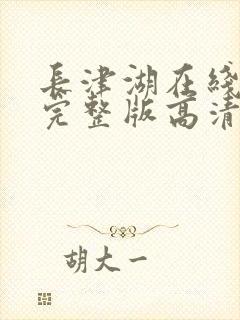 長津湖在綫
完整版高清
胡大一